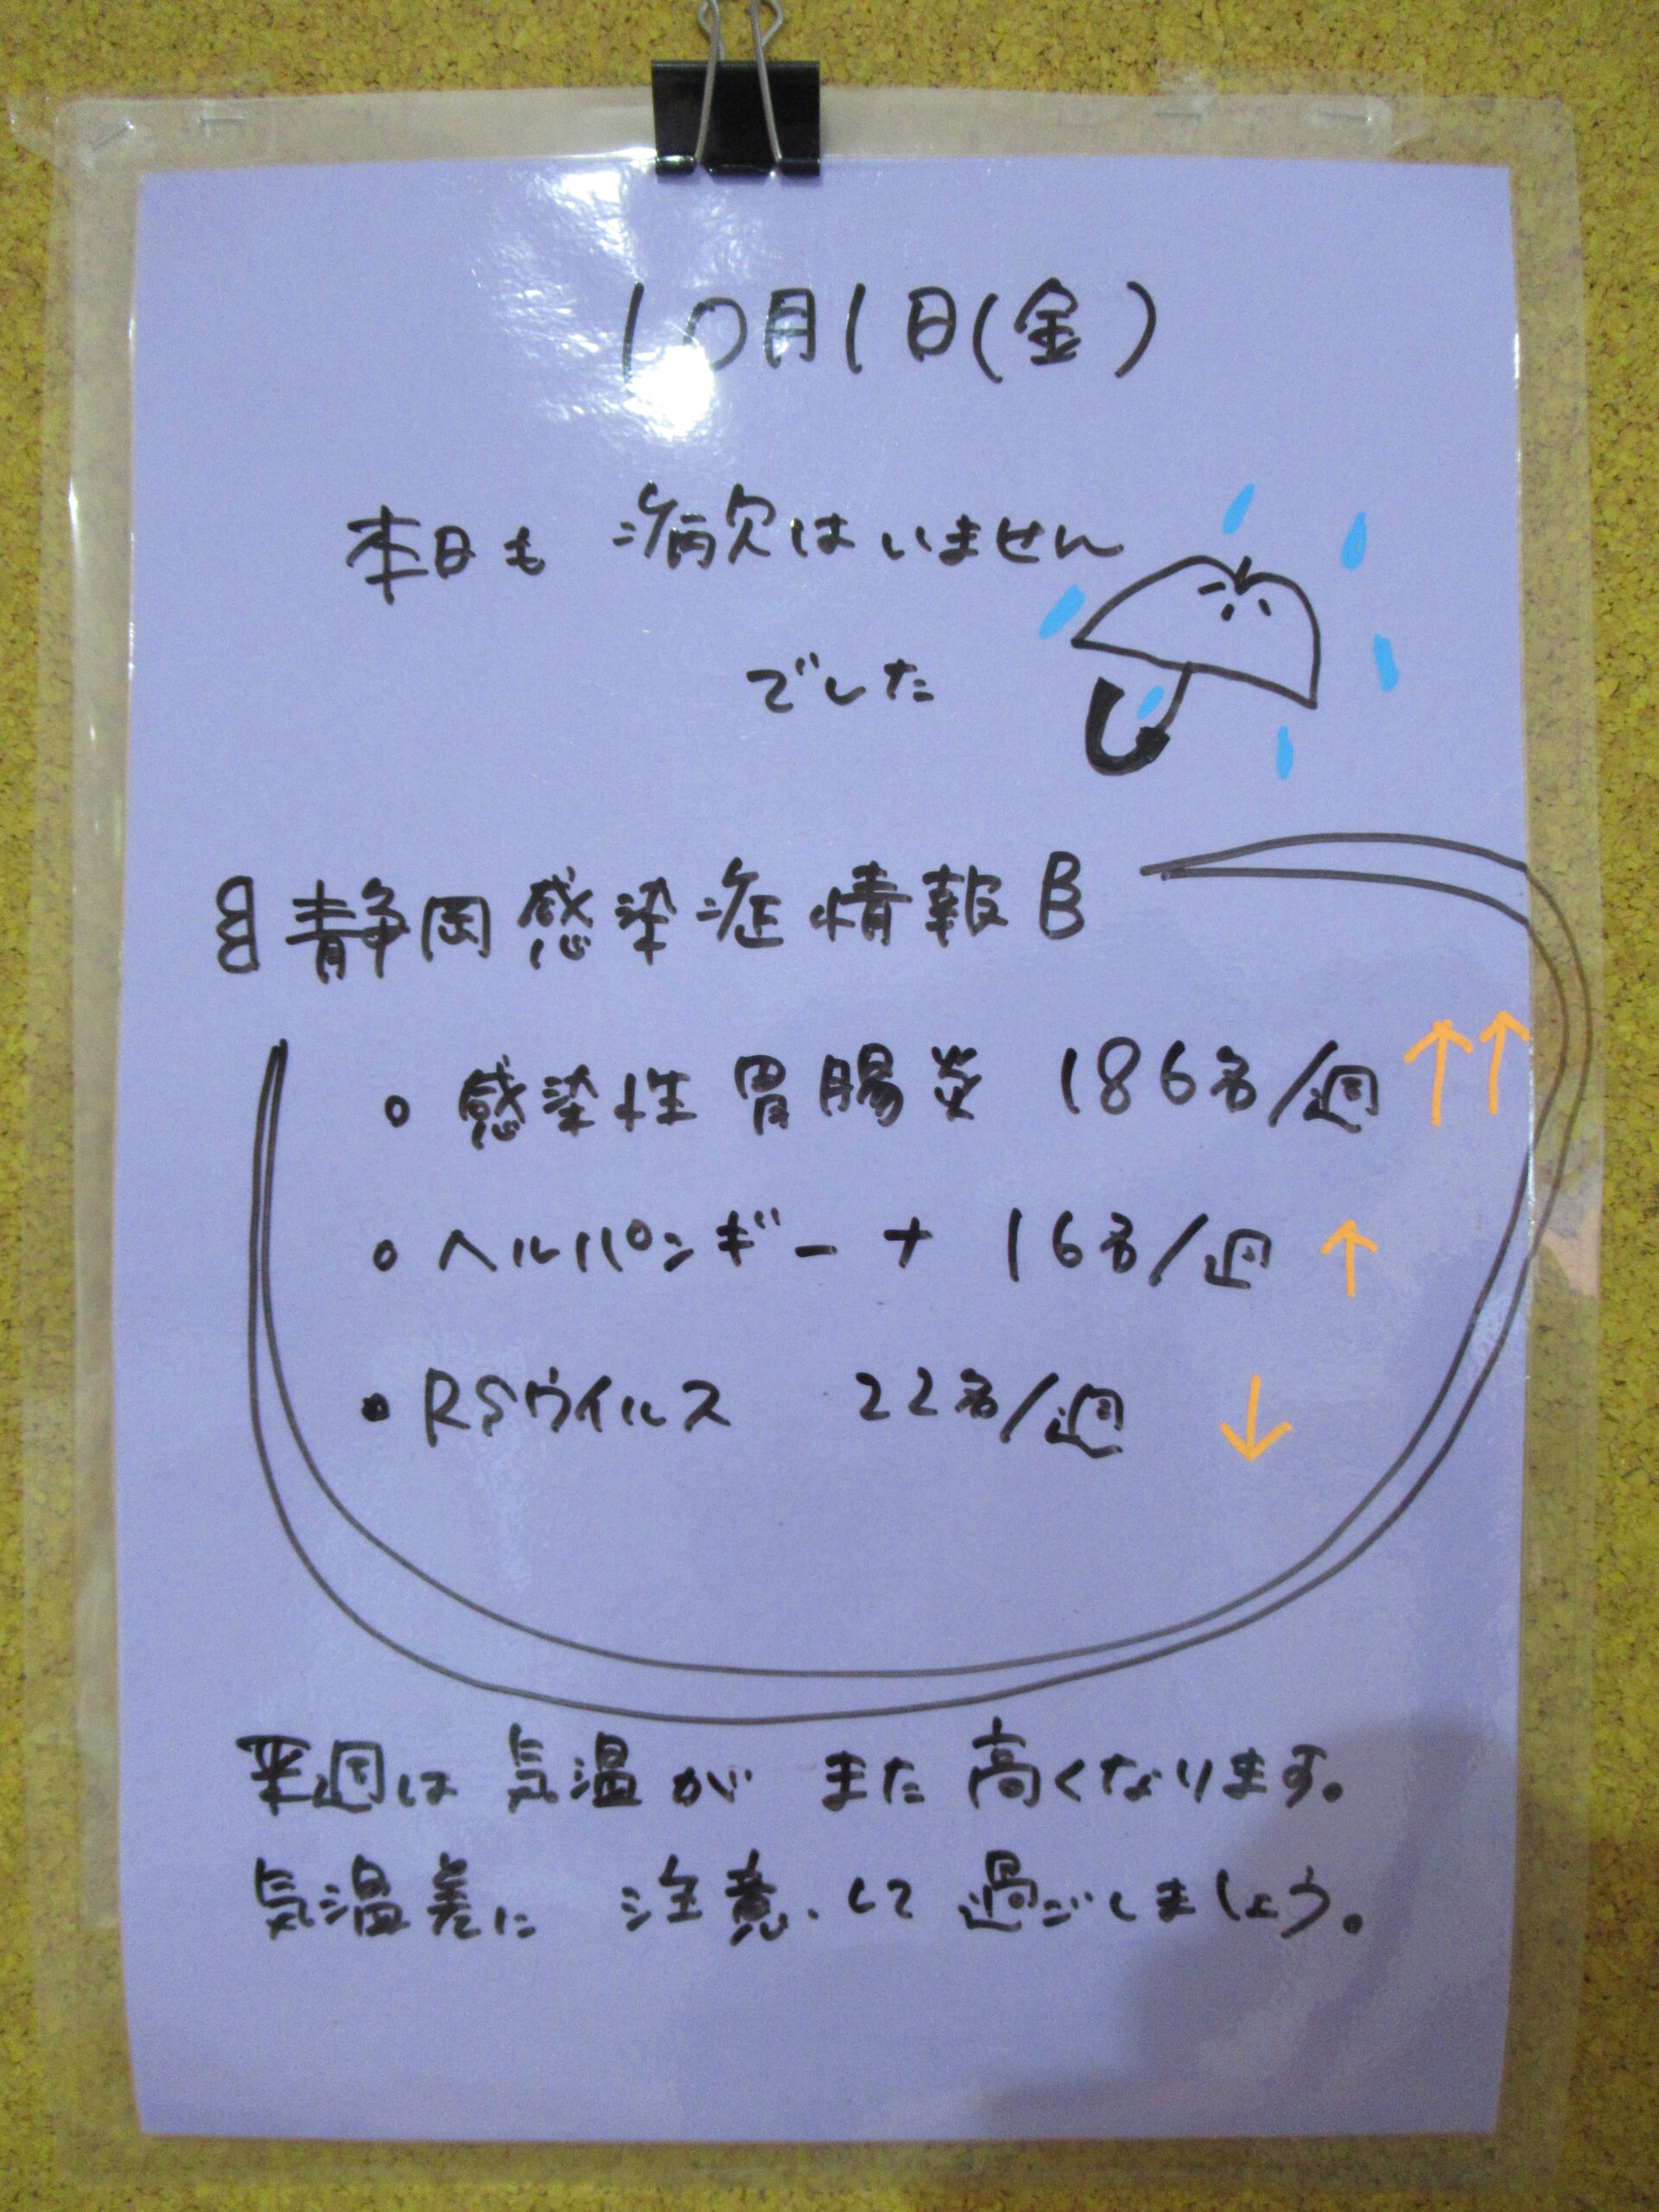 10月1日(金)
本日も 病欠はいません
でした
静岡感染症情報
・感染性胃腸炎 186名/週 ↑↑
・ヘルパンギーナ 16名/週 ↑
・RSウイルス 22名/週 ↓
来週は 気温が また 高くなります。
気温差に 注意して 過ごしましょう。